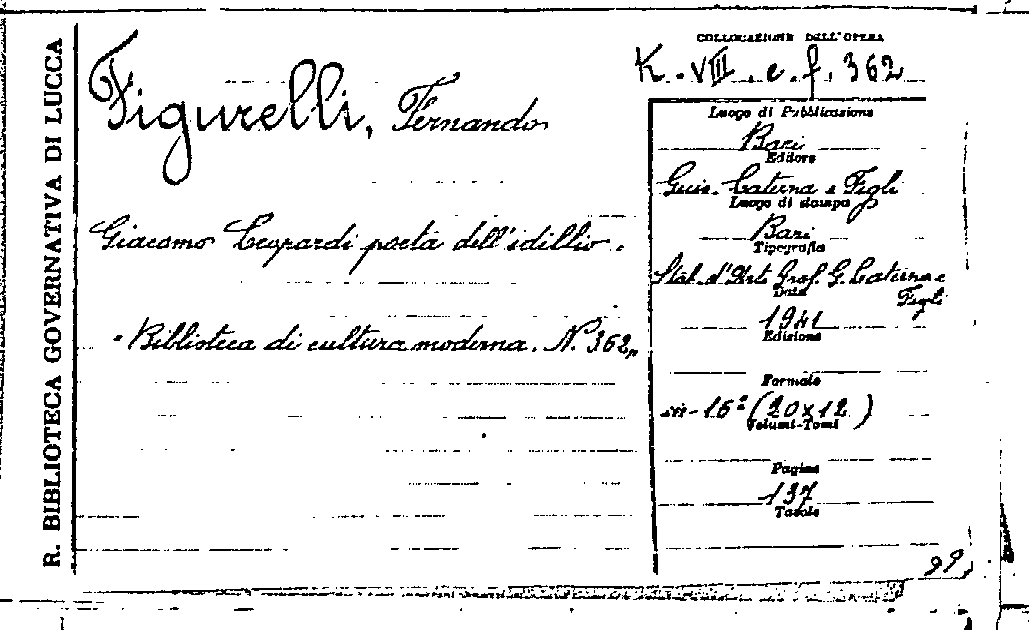 R. BIBLIOTECA GOVERNATIVA DI LUCCA
Figurelli, Fernando
Giacomo Leopardi poeta dell'idillio.
"Biblioteca di cultura moderna. N. 362"
COLLOCAZIONE DELL'OPERA
K. VIII. e. f. 362
Luogo di Pubblicazione
Bari
Editore
Gius. Laterza e Figli
Luogo di stampa
Bari
Tipografia
Stab. d'Arti Graf. G. Laterza e
Figli
Data
1941
Edizione
Formato
in-16° (20x12)
Volumi-Tomi
Pagine
137
Tavole
99